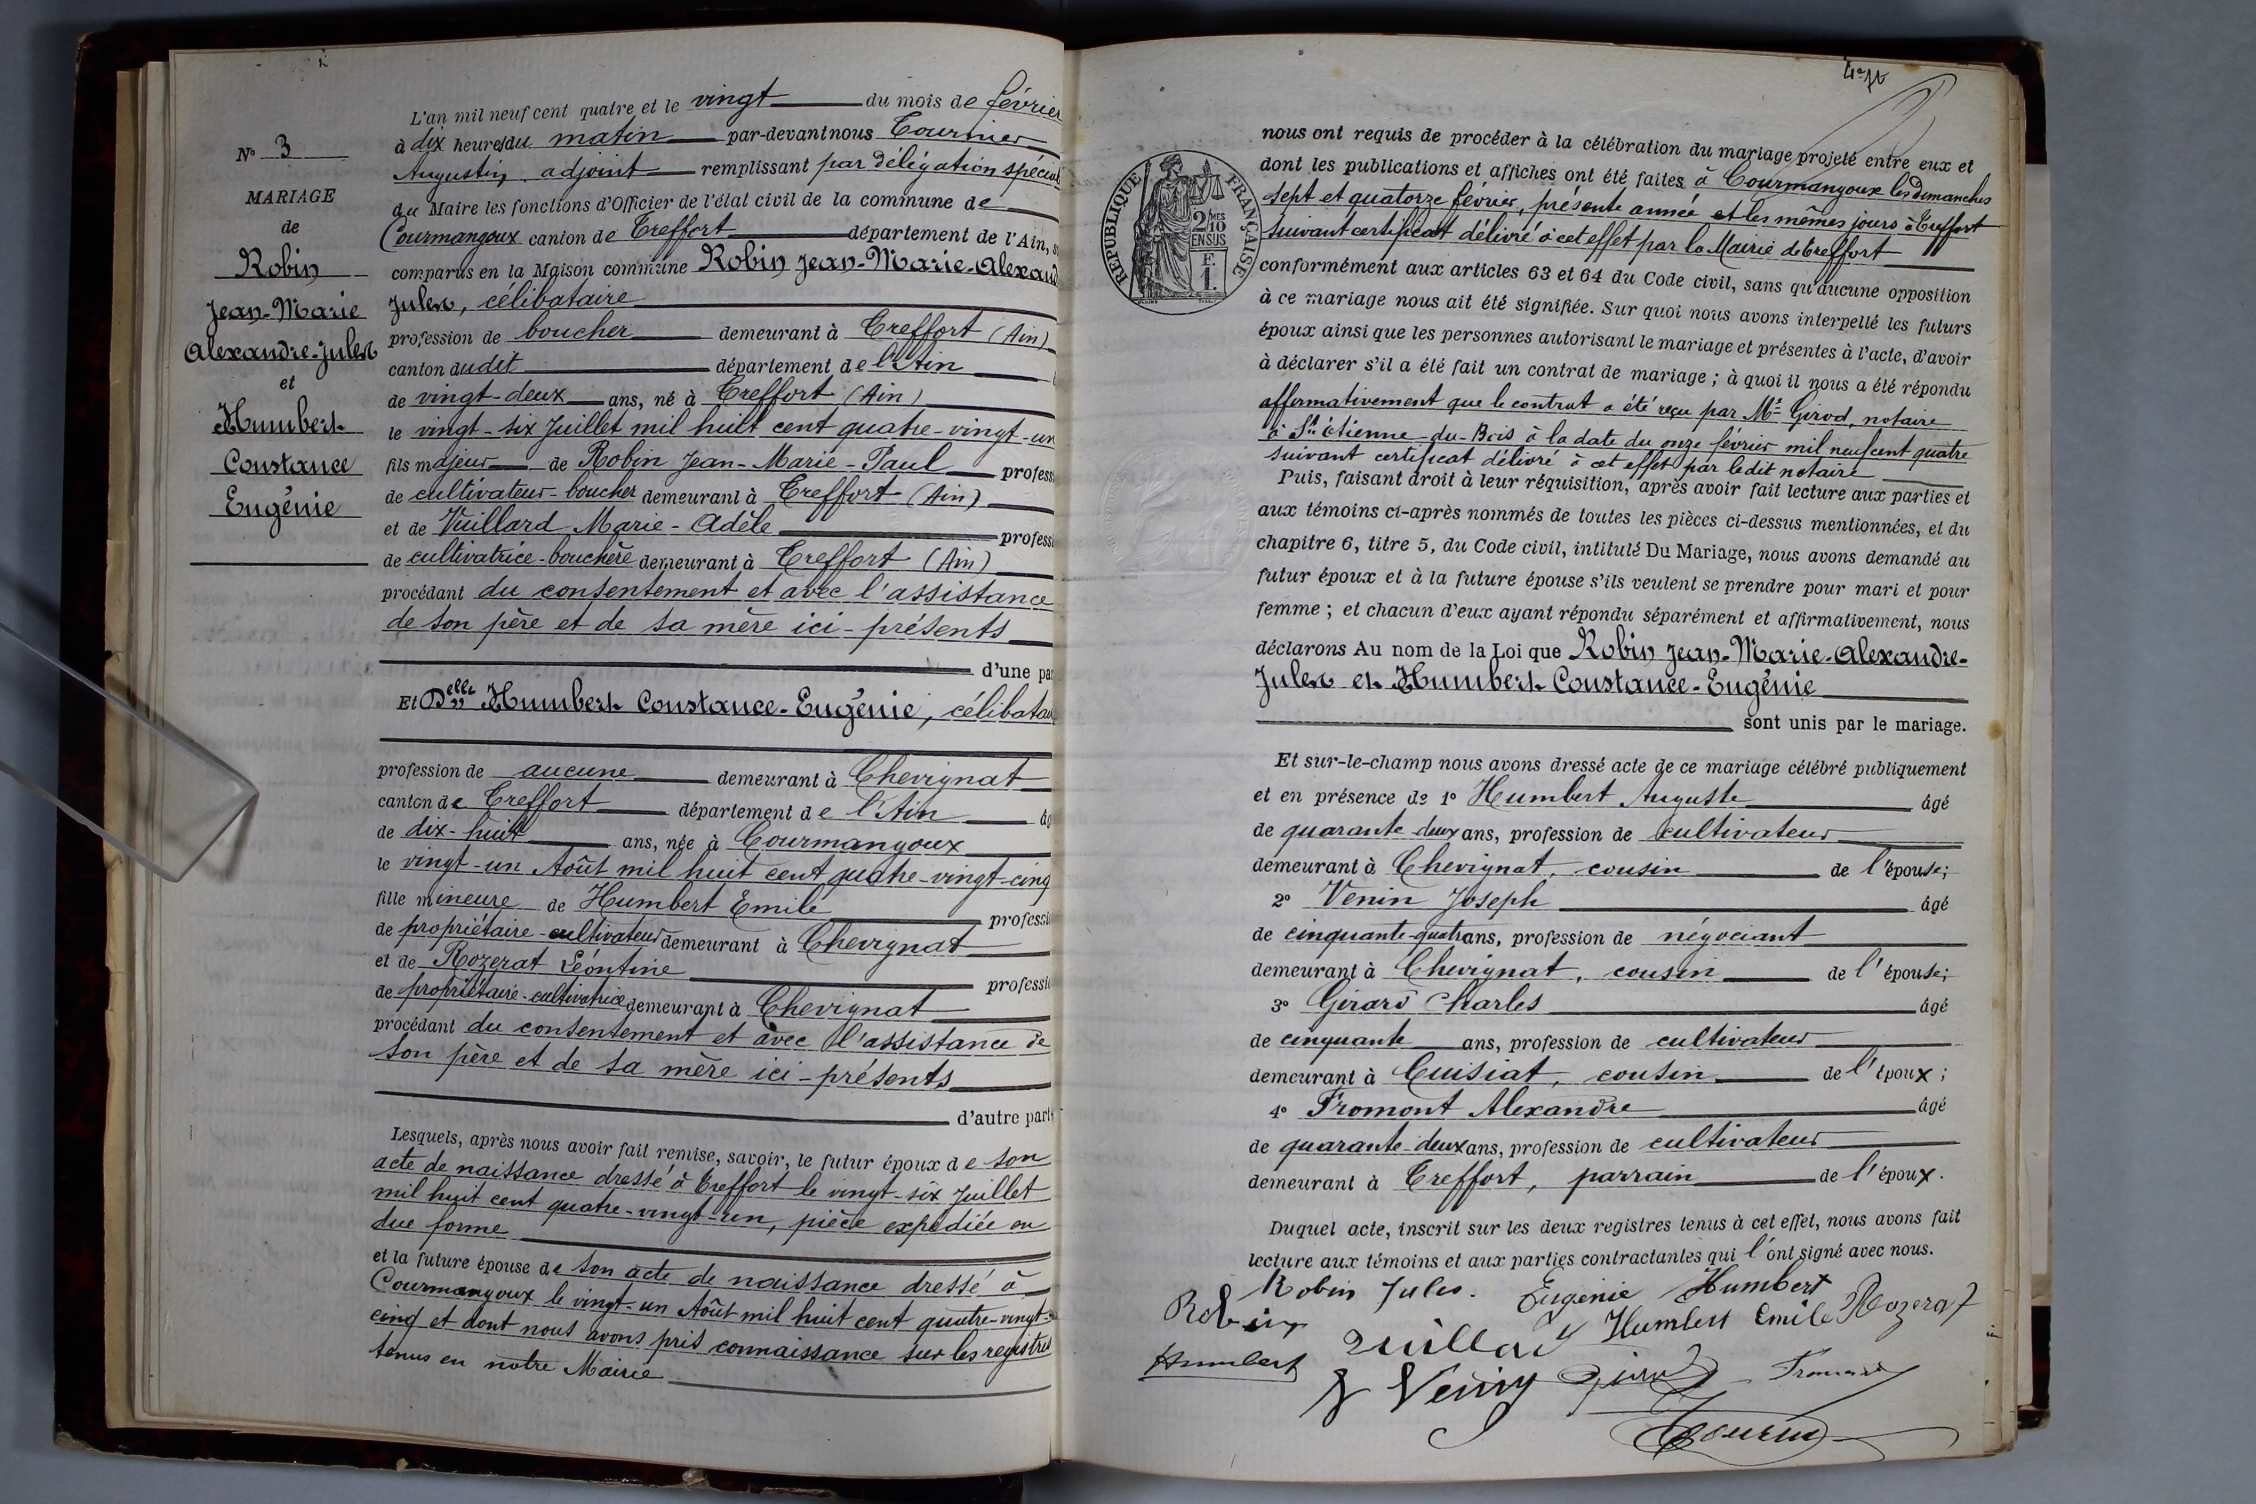 N° 3
MARIAGE
de
Robin
Jean-Marie
Alexandre-Jules
et
Humbert
Constance
Eugénie
L'an mil neuf cent quatre et le vingt du mois de février
à dix heures du matin par-devant nous Tournier
Augustin, adjoint remplissant par délégation spéciale
du Maire les fonctions d'Officier de l'état civil de la commune de
Courmangoux canton de Treffort département de l'Ain,
comparus en la Maison commune Robin Jean-Marie-Alexand
Jules, célibataire
profession de boucher demeurant à Treffort (Ain)
canton dudit département de l'Ain
de vingt-deux ans, né à Treffort (Ain)
le vingt-six Juillet mil huit cent quatre-vingt-un
fils majeur de Robin Jean-Marie-Paul profess
de cultivateur-boucher demeurant à Treffort (Ain)
et de Vuillard Marie-Adèle profess
de cultivatrice-bouchère demeurant à Treffort (Ain)
procédant du consentement et avec l'assistance
de son père et de sa mère ici-présents
d'une par
Et Delle Humbert Constance-Eugénie, célibatai
profession de aucune demeurant à Chevignat
canton de Treffort département de l'Ain âg
de dix-huit ans, née à Courmangoux
le vingt-un Août mil huit cent quatre-vingt-cinq
fille mineure de Humbert Emile professi
de propriétaire-cultivateur demeurant à Chevignat
et de Rozerat Léontine professi
de propriétaire-cultivatrice demeurant à Chevignat
procédant du consentement et avec l'assistance de
son père et de sa mère ici-présents
d'autre part
Lesquels, après nous avoir fait remise, savoir, le futur époux de son
acte de naissance dressé à Treffort le vingt-six Juillet
mil huit cent quatre-vingt-un, pièce expédiée en
due forme
et la future épouse de son acte de naissance dressé à
Courmangoux le vingt-un Août mil huit cent quatre-vingt-
cinq et dont nous avons pris connaissance sur les registres
tenus en notre Mairie
nous ont requis de procéder à la célébration du mariage projeté entre eux et
dont les publications et affiches ont été faites à Courmangoux les Dimanches
sept et quatorze février, présente année et les mêmes jours à Treffort
suivant certificat délivré à cet effet par la Mairie de Treffort
conformément aux articles 63 et 64 du Code civil, sans qu'aucune opposition
à ce mariage nous ait été signifiée. Sur quoi nous avons interpellé les futurs
époux ainsi que les personnes autorisant le mariage et présentes à l'acte, d'avoir
à déclarer s'il a été fait un contrat de mariage ; à quoi il nous a été répondu
affirmativement que le contrat a été reçu par Me Girod, notaire
à St Etienne-du-Bois à la date du onze février mil neuf cent quatre
suivant certificat délivré à cet effet par ledit notaire
Puis, faisant droit à leur réquisition, après avoir fait lecture aux parties et
aux témoins ci-après nommés de toutes les pièces ci-dessus mentionnées, et du
chapitre 6, titre 5, du Code civil, intitulé Du Mariage, nous avons demandé au
futur époux et à la future épouse s'ils veulent se prendre pour mari et pour
femme ; et chacun d'eux ayant répondu séparément et affirmativement, nous
déclarons Au nom de la Loi que Robin Jean-Marie-Alexandre-
Jules et Humbert Constance-Eugénie
sont unis par le mariage.
Et sur-le-champ nous avons dressé acte de ce mariage célébré publiquement
et en présence de 1° Humbert Auguste âgé
de quarante-deux ans, profession de cultivateur
demeurant à Chevignat, cousin de l'épouse;
2° Venin Joseph âgé
de cinquante-quatre ans, profession de négociant
demeurant à Chevignat, cousin de l'épouse;
3° Girard Charles âgé
de cinquante ans, profession de cultivateur
demeurant à Cuisiat, cousin de l'époux;
4° Fromont Alexandre âgé
de quarante-deux ans, profession de cultivateur
demeurant à Treffort, parrain de l'époux.
Duquel acte, inscrit sur les deux registres tenus à cet effet, nous avons fait
lecture aux témoins et aux parties contractantes qui l'ont signé avec nous.
Robin Jules. Eugénie Humbert
Robin Vuillard Humbert Emile Rozerat
Humbert J Venin Girard Fromont
Tournier
RÉPUBLIQUE FRANÇAISE
2/10 MES
EN SUS
F.
1.